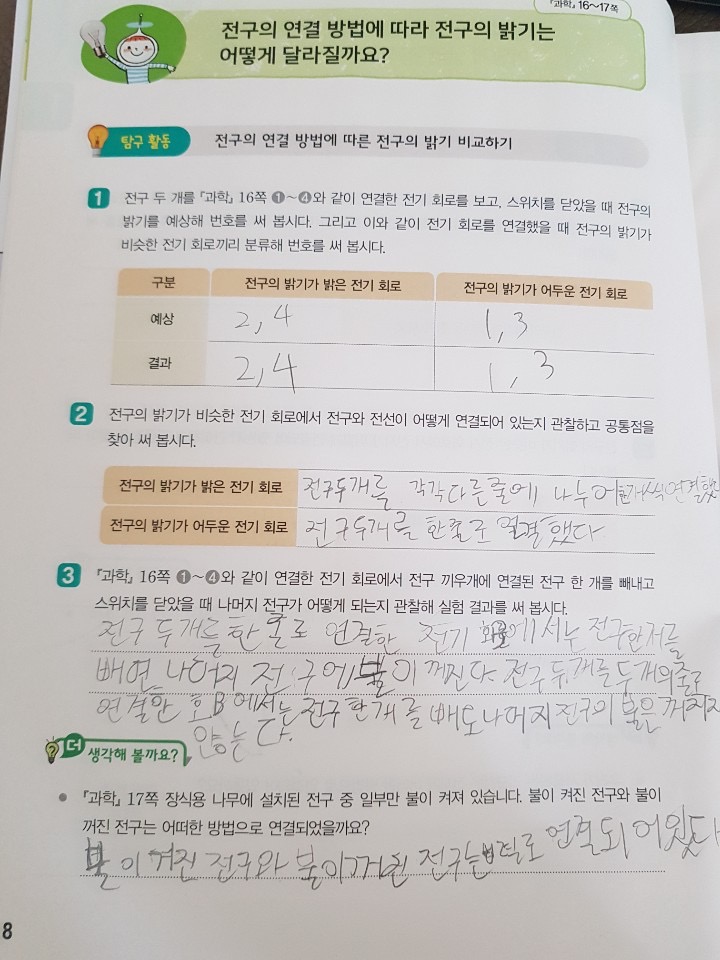 『과학』 16~17쪽
전구의 연결 방법에 따라 전구의 밝기는
어떻게 달라질까요?
탐구 활동 전구의 연결 방법에 따른 전구의 밝기 비교하기
1 전구 두 개를 『과학』 16쪽 ❶~❹와 같이 연결한 전기 회로를 보고, 스위치를 닫았을 때 전구의
밝기를 예상해 번호를 써 봅시다. 그리고 이와 같이 전기 회로를 연결했을 때 전구의 밝기가
비슷한 전기 회로끼리 분류해 번호를 써 봅시다.
구분 전구의 밝기가 밝은 전기 회로 전구의 밝기가 어두운 전기 회로
예상 2, 4 1, 3
결과 2, 4 1, 3
2 전구의 밝기가 비슷한 전기 회로에서 전구와 전선이 어떻게 연결되어 있는지 관찰하고 공통점을
찾아 써 봅시다.
전구의 밝기가 밝은 전기 회로 전구두개를 각각다른줄에 나누어한개씩연결했
전구의 밝기가 어두운 전기 회로 전구두개를 한줄로 연결했다
3 『과학』 16쪽 ❶~❹와 같이 연결한 전기 회로에서 전구 끼우개에 연결된 전구 한 개를 빼내고
스위치를 닫았을 때 나머지 전구가 어떻게 되는지 관찰해 실험 결과를 써 봅시다.
전구 두개를 한줄로 연결한 전기 회로에서는 전구한개를
빼면 나머지 전구에 불이 꺼진다 전구 두개를 두개의줄로
연결한 에서는 전구한개를 빼도나머지전구의 불은 꺼지지
않는다.
더 생각해 볼까요?
● 『과학』 17쪽 장식용 나무에 설치된 전구 중 일부만 불이 켜져 있습니다. 불이 켜진 전구와 불이
꺼진 전구는 어떠한 방법으로 연결되었을까요?
불이 켜진 전구와 불이꺼진 전구는 로 연결되어있다
8